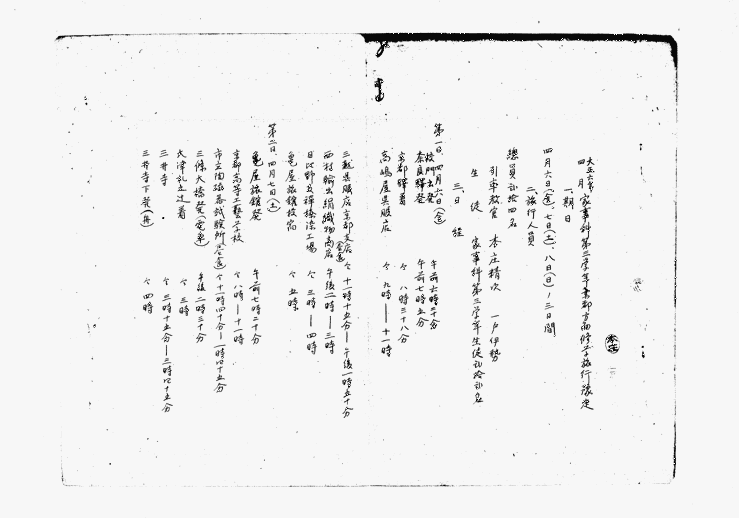 大正六年 家事科第三学年京都方面修学旅行豫定
一、期日
四月六日(金)、七日(土)、八日(日) 三日間
二、旅行人員
總員 四名
引率教官 本庄精次 一戸伊勢
生徒 家事科第三学年生徒
三、日程
第一日、四月六日(金)
校門出発 午前六時三十分
奈良驛発 午前七時五分
京都驛着 〃 八時三十八分
高嶋屋呉服店 〃 九時—十一時
三越呉服店京都支店(昼食) 〃 十一時十五分—午後一時五十分
西村輸出絹織物商店 午後二時—三時
日比野友禅捺染工場 〃 三時—四時
亀屋旅舘投宿 〃 五時
第二日、四月七日(土)
亀屋旅舘発 午前七時二十分
京都高等工藝学校 〃 八時—十一時
市立陶磁器試験所(昼食) 〃 十一時四十分—一時四十五分
三條大橋発(電車) 午後二時三十分
大津札之辻着 〃 三時
三井寺 〃 三時十五分—三時四十五分
三井寺下発 〃 四時